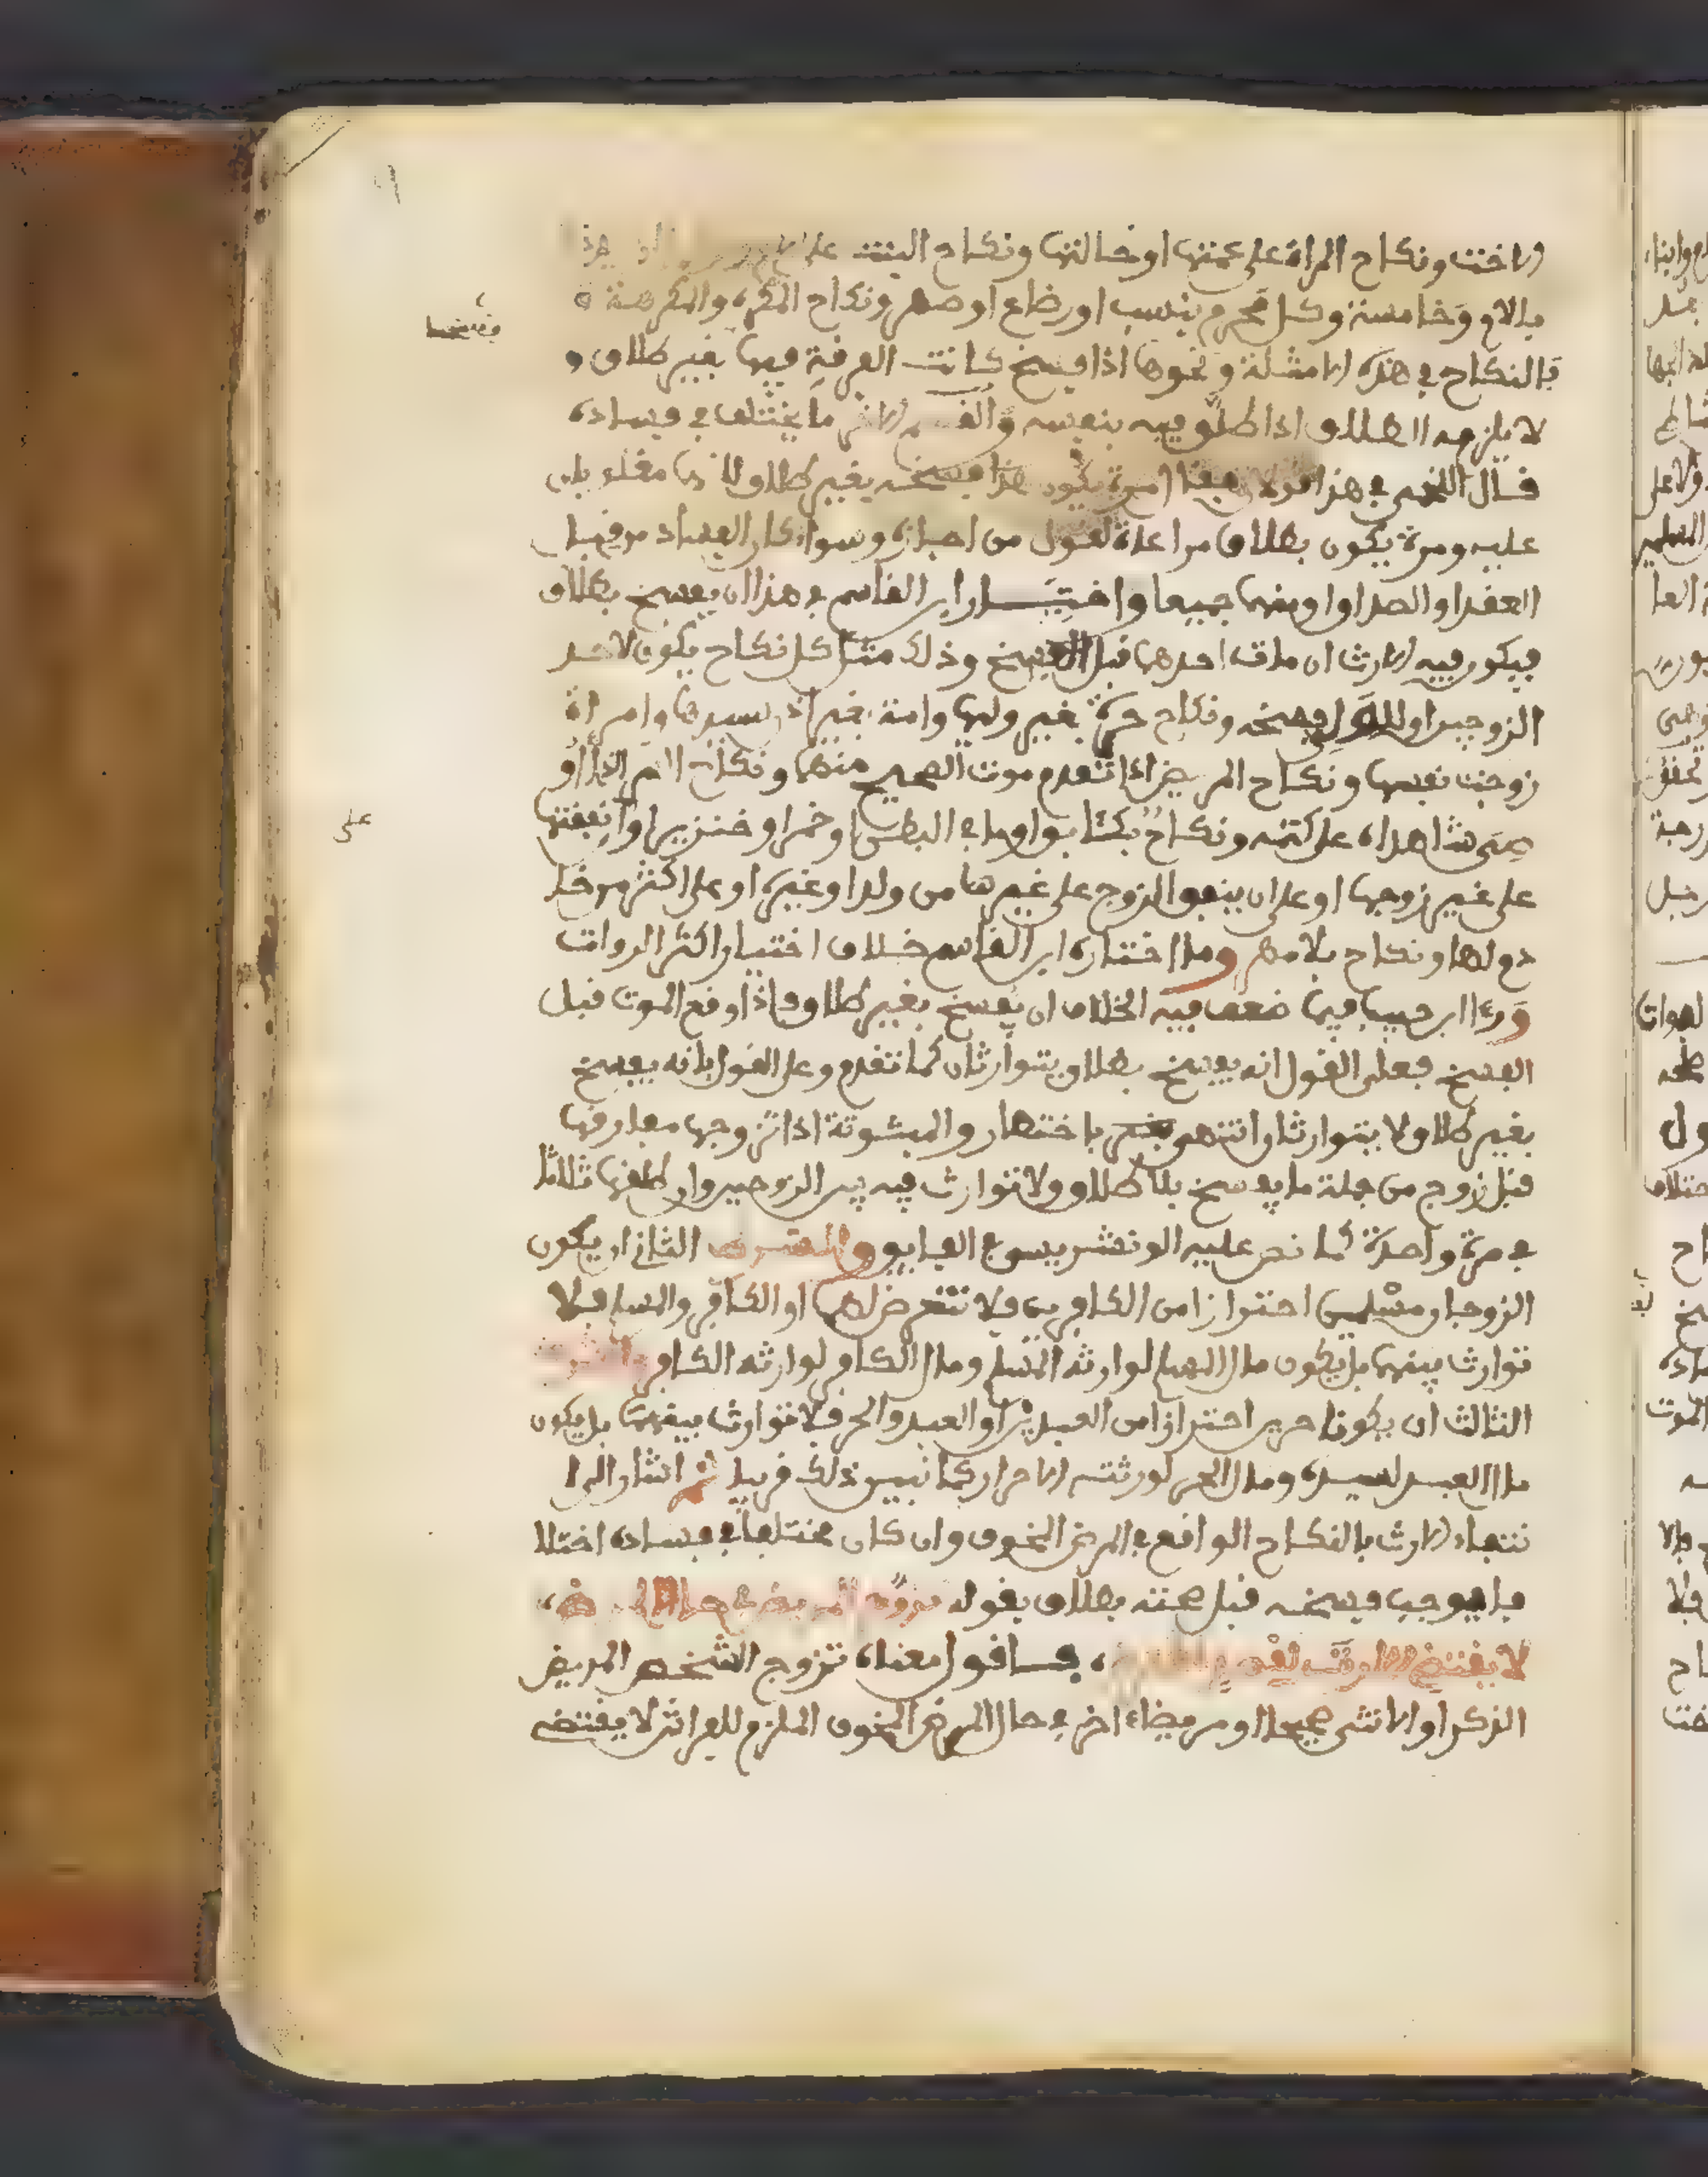 الاخت ونكاح المراة على عمتها او خالتها ونكاح البنت على
بالام وخامسة وكل محرم بنسب او رضاع او صهر ونكاح المكره والمكرهة
فالنكاح في هذه الامثلة ونحوها اذا فسخ كانت الفرقة فيها بغير طلاق و
لا يلزمه الطلاق اذا طلق فيه بنفسه ما يختلف في فساده
قال اللخمي في هذا يكون فسخه بغير طلاق
عليه ومرة يكون بطلاق مراعاة لقول من اجازه وسواء كان الفساد من قبل
العقد او الصداق او منهما جميعا واختيار ابن القاسم في هذا ان يفسخ بطلاق
فيكون فيه الارث ان مات احدهما قبل الفسخ وذلك مثل كل نكاح يكون لاحد
الزوجين او للولي فسخه ونكاح حرة بغير وليها وامة بغير اذن سيدها وامراة
زوجت نفسها ونكاح المريض اذا تقدم موت الصحيح منهما ونكاح
شاهداه على كتمه ونكاح بكتابي او بما في البطن او خمر او خنزير او
على غير زوجها او على ان ينفق الزوج على غيرها من ولد او غيره او على اكثر من
ونكاح بلا مهر وما اختاره ابن القاسم خلاف اختيار اكثر الروات
ورءا ابن حبيب فيما ضعف فيه الخلاف ان يفسخ بغير طلاق فاذا وقع الموت قبل
الفسخ فعلى القول انه يفسخ بطلاق يتوارثان كما تقدم وعلى القول بانه يفسخ
بغير طلاق لا يتوارثان انتهى باختصار والمبتوتة اذا تزوجها مفارقها
قبل زوج من جملة ما يفسخ بلا طلاق ولا توارث فيه بين الزوجين وان طلقها ثلاثا
في مرة واحدة كما نص عليه الونشريسي في الفايق والشرط الثاني ان يكون
الزوجان مسلمين احترازا من الكافرين فلا نتعرض لهما او الكافر والمسلم فلا
توارث بينهما بل يكون مال المسلم لوارثه المسلم ومال الكافر لوارثه الكافر
الثالث ان يكونا حرين احترازا من العبدين او العبد والحر فلا توارث بينهما بل يكون
مال العبد لسيده ومال الحر لورثته الاحرار كما نبين ذلك قريبا ثم اشار الى ا
نتفاء الارث بالنكاح الواقع في المرض المخوف وان كان مختلفا في فساده اختلا
فا يوجب فسخه قبل صحته بطلاق بقوله تزوج المريض في حال المرض
لا يقتضي الارث اقول معناه تزوج الشخص المريض
الذكر او الانثى صحيحا او مريضا اخر في حال المرض المخوف الملزم للفراش لا يقتضي
على